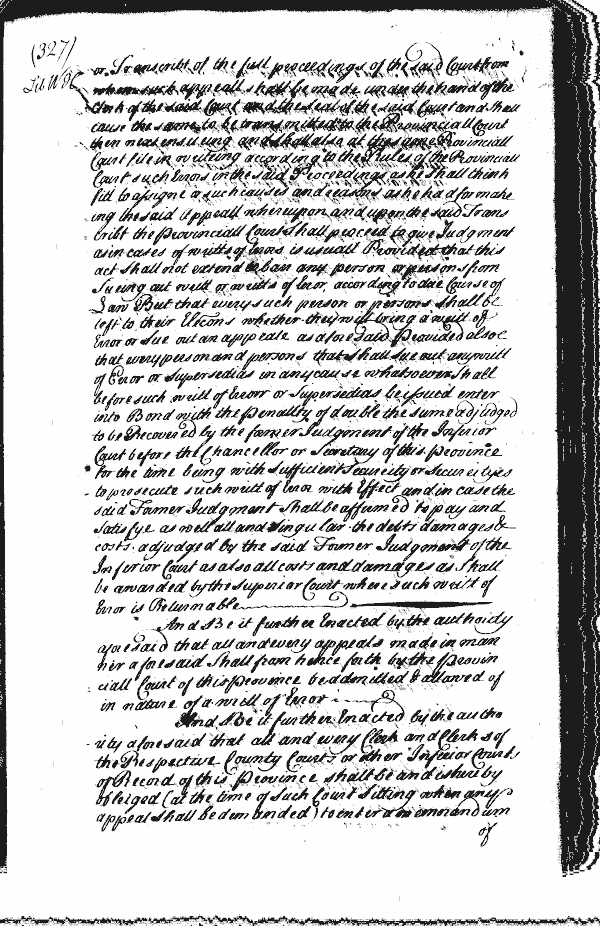 (327)
Lib W H
or Transcribt of the full proceedings of the said Court from
whom such appeall shall be made under the hand of the
Clerk of the said Court and the seal of the said Court and shall
cause the same to be transmitted to the Provinciall Court
then next ensueing and shall also at the same Provinciall
Court file in writeing according to the Rules of the Provinciall
Court such Errors in the said Proceedings as he shall think
fitt to assigne or such causes and reasons as he had for make
ing the said appeall whereupon and upon the said Trans
cribt the Provinciall Court shall proceed to give Judgment
as in cases of writts of Error is usuall Provided that this
act shall not extend to barr any person or persons from
Sueing out writt or writts of Error according to due Course of
Law But that every such person or persons shall be
left to their Elecons whether they will bring a writt of
Error or Sue out an appeale as aforesaid Provided alsoe
that every person and persons that shall Sue out any writt
of Error or Supersedias in any cause whatsoever Shall
before such writt of Error or Supersedias be issued enter
into Bond with the Penallty of double the sume adjudged
to be Recovered by the former Judgment of the Inferior
Court before the Chancellor or Secretary of this Province
for the time being with sufficient Security or Securityes
to prosecute such writt of Error with Effect and in case the
said Former Judgment Shall be affirmed to pay and
Satisfye as well all and Singular the debts damages &
costs adjudged by the said Former Judgment of the
Inferior Court as also all costs and damages as Shall
be awarded by the Superior Court where such writt of
Error is Returnable
And Be it further Enacted by the authority
aforesaid that all and every appeals made in man
ner aforesaid Shall from hence forth by the Provin
ciall Court of this Province be admitted & allowed of
in nature of a writt of Error
And Be it further Enacted by the autho
rity aforesaid that all and every Clerk and Clerks of
the Respective County Courts or other Inferior Courts
of Record of this Province shall be and is hereby
obleiged (at the time of such Court Sitting when any
appeal shall be demanded) to enter a memorandum
of